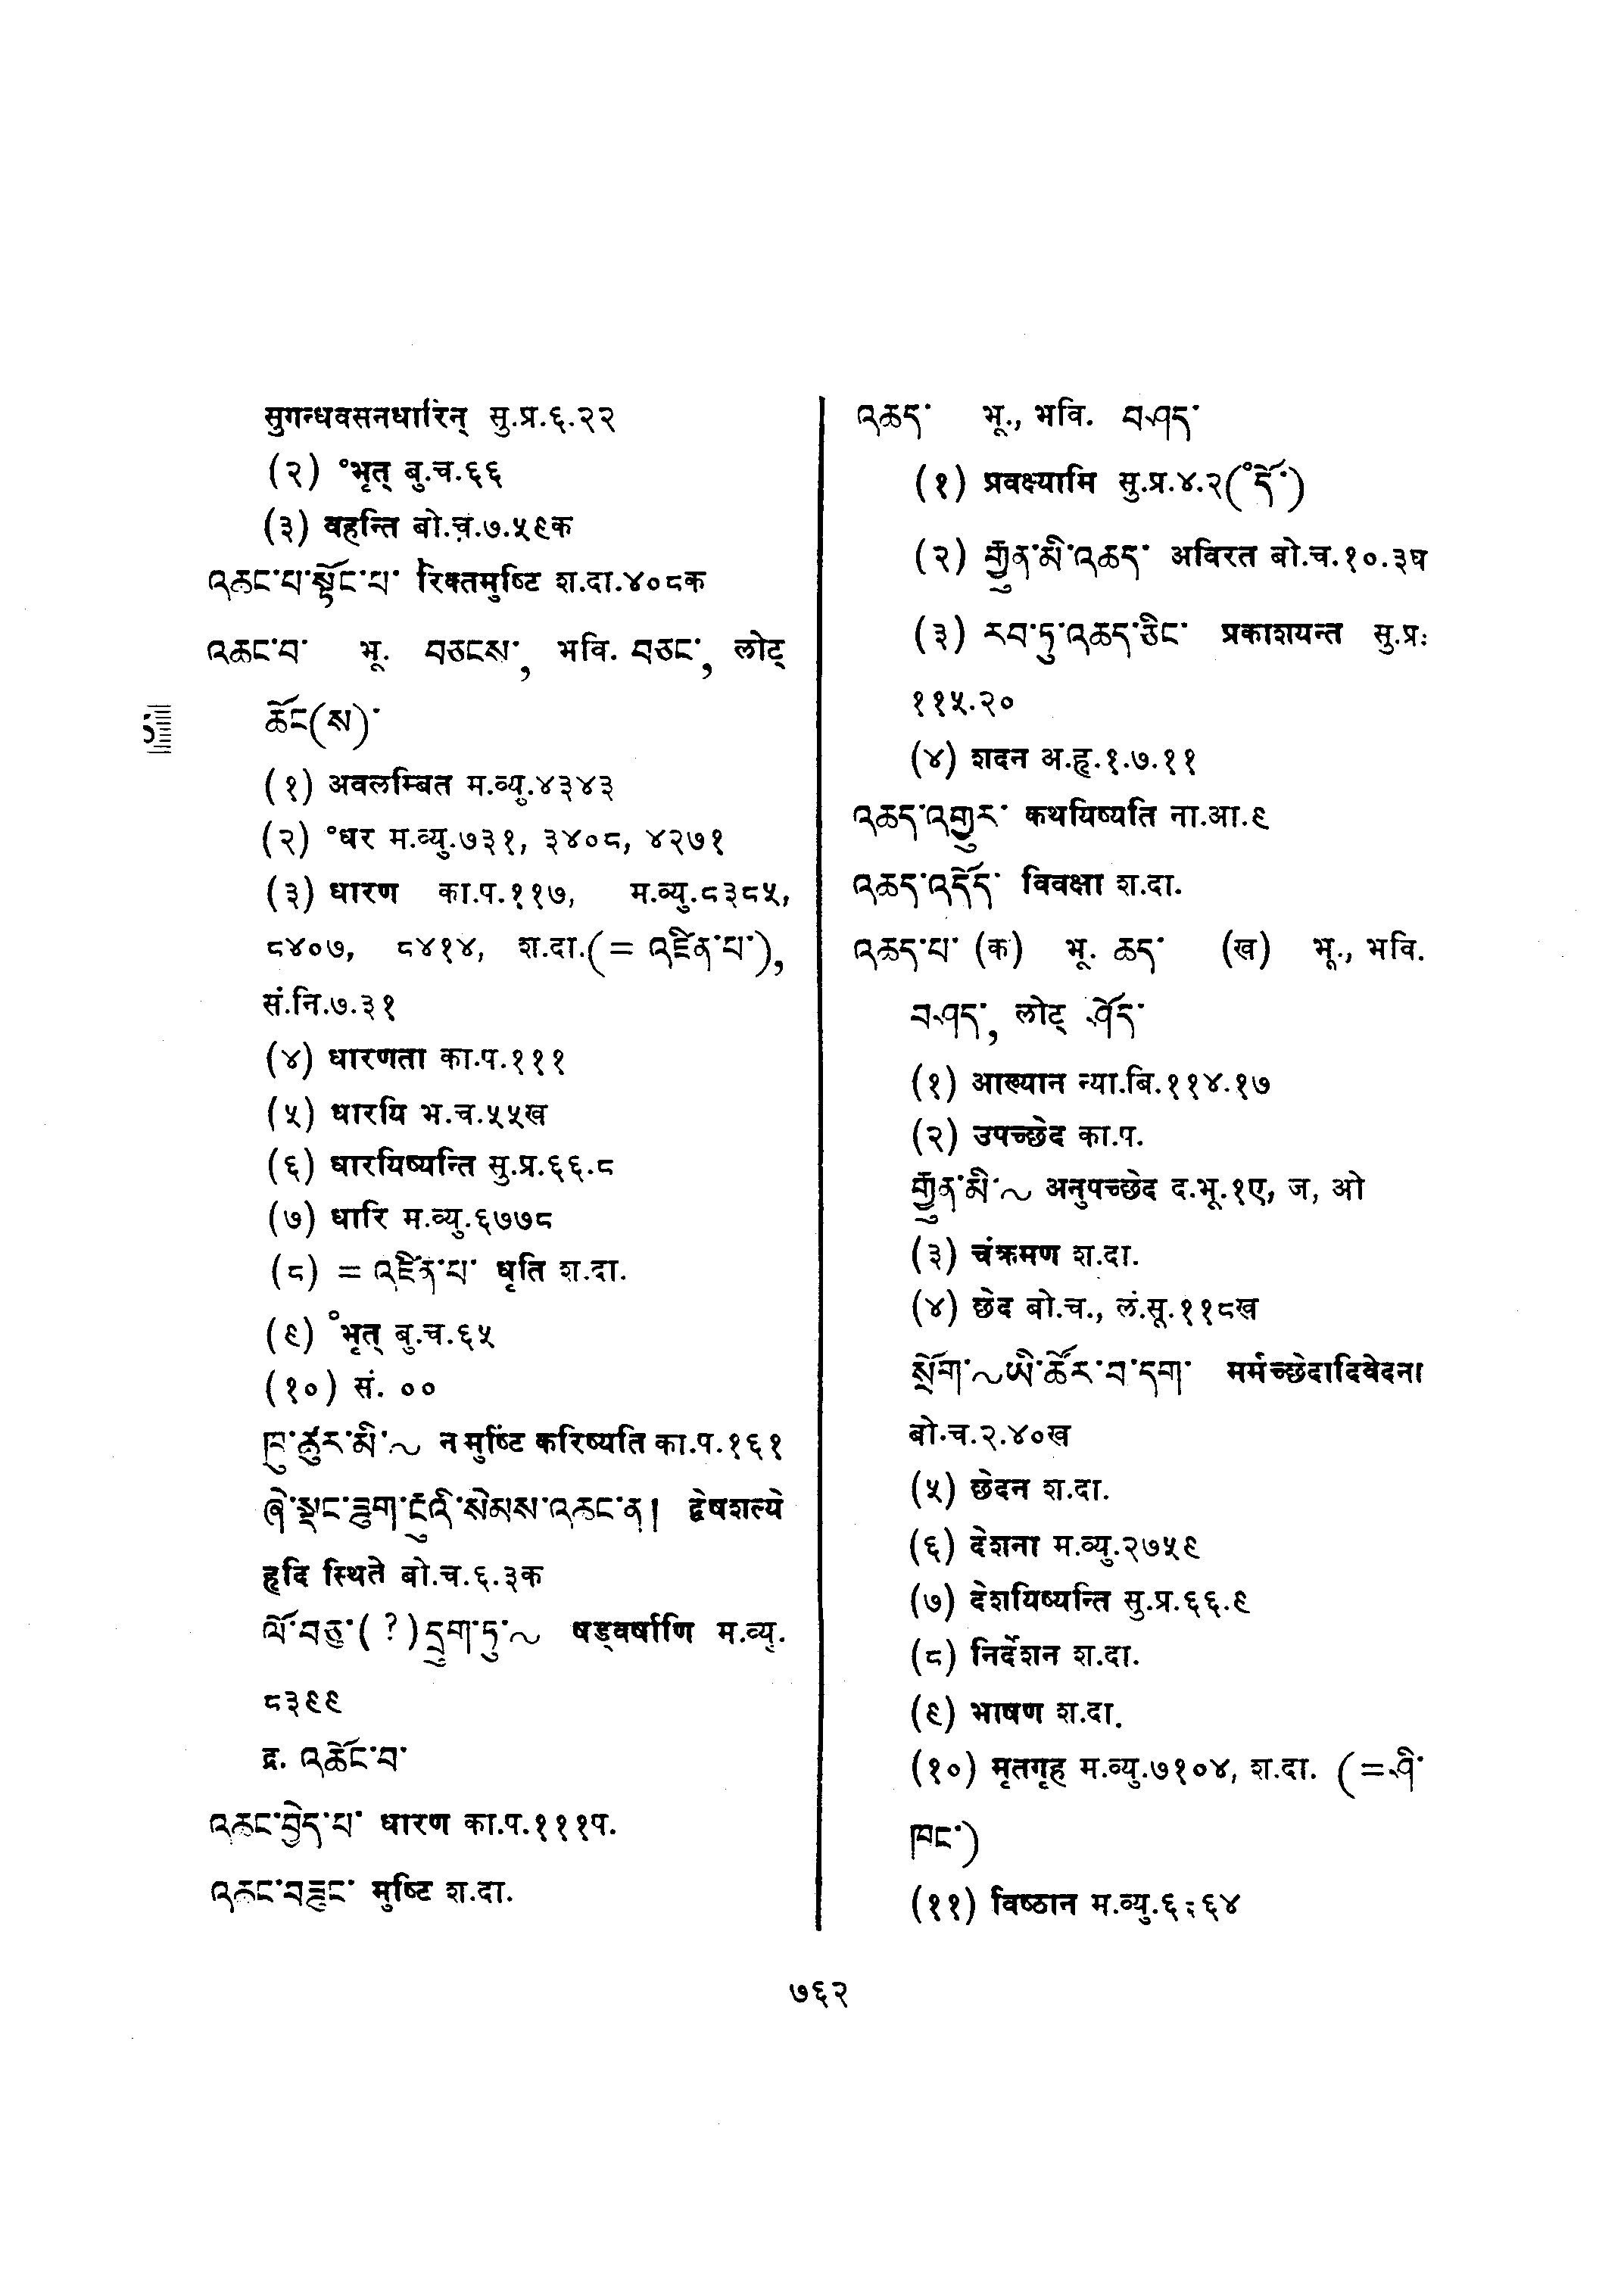 सुगन्धवसनधारिन् सु.प्र.६.२२
(२) °भृत् बु.च.६६
(३) वहन्ति बो.च.७.५९क
འཆང་པ་སྟོང་པ་ रिक्तमुष्टि श.दा.४०८क
འཆང་བ་ भू. བཅངས་, भवि. བཅང་, लोट्
ཆོང(ས)་
(१) अवलम्बित म.व्यु.४३४३
(२) °धर म.व्यु.७३१, ३४०८, ४२७१
(३) धारण का.प.११७, म.व्यु.८३८५,
८४०७, ८४१४, श.दा.(= འཛིན་པ་),
सं.नि.७.३१
(४) धारणता का.प.१११
(५) धारयि भ.च.५५ख
(६) धारयिष्यन्ति सु.प्र.६६.८
(७) धारि म.व्यु.६७७८
(८) = འཛིན་པ་ धृति श.दा.
(९) °भृत् बु.च.६५
(१०) सं. ००
ཁུ་ཚུར་མི་~ न मुष्टिं करिष्यति का.प.१६१
ཞེ་སྡང་ཟུག་རྔུའི་སེམས་འཆང་ན། द्वेषशल्ये
हृदि स्थिते बो.च.६.३क
ལོ་བཅུ་(?)དྲུག་ཏུ་~ षड्वर्षाणि म.व्यु.
८३९९
द्र. འཆོང་བ་
འཆང་བྱེད་པ་ धारण का.प.१११प.
འཆང་བཟུང་ मुष्टि श.दा.
འཆད་ भू., भवि. བཤད་
(१) प्रवक्ष्यामि सु.प्र.४.२(°དོ་)
(२) རྒྱུན་མི་འཆད་ अविरत बो.च.१०.३घ
(३) རབ་ཏུ་འཆད་ཅིང་ प्रकाशयन्त सु.प्र.
११५.२०
(४) शदन अ.हृ.१.७.११
འཆད་འགྱུར་ कथयिष्यति ना.आ.९
འཆད་འདོད་ विवक्षा श.दा.
འཆད་པ་ (क) भू. ཆད་ (ख) भू., भवि.
བཤད་, लोट् ཤོད་
(१) आख्यान न्या.बि.११४.१७
(२) उपच्छेद का.प.
རྒྱུན་མི་~ अनुपच्छेद द.भू.१ए, ज, ओ
(३) चंक्रमण श.दा.
(४) छेद बो.च., लं.सू.११८ख
སྲོག་~ཡི་ཚོར་བ་དག་ मर्मच्छेदादिवेदना
बो.च.२.४०ख
(५) छेदन श.दा.
(६) देशना म.व्यु.२७५९
(७) देशयिष्यन्ति सु.प्र.६६.९
(८) निर्देशन श.दा.
(९) भाषण श.दा.
(१०) मृतगृह म.व्यु.७१०४, श.दा. (=ཤི་
ཁང་)
(११) विष्ठान म.व्यु.
७६२